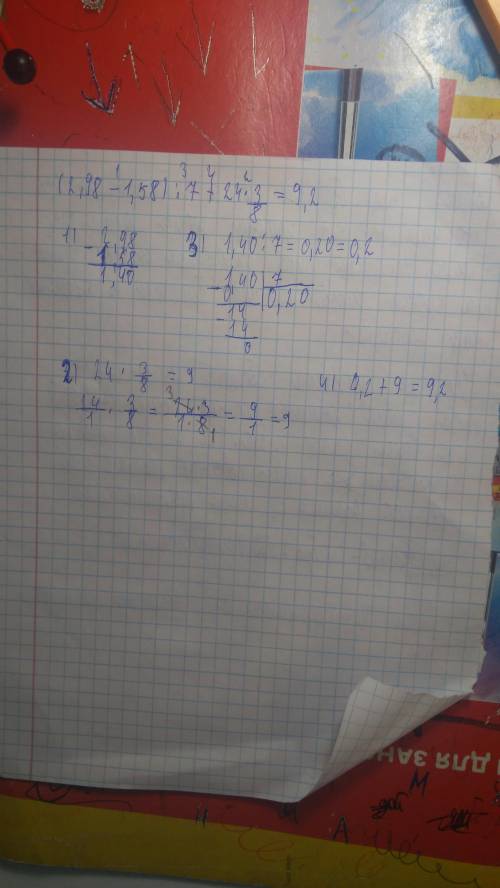 1 3 4 2
(2,98 - 1,58) : 7 + 24 · 3/8 = 9,2
1) - 2,98
1,58
1,40
3) 1,40 : 7 = 0,20 = 0,2
- 1,40 | 7
0 | 0,20
- 14
14
0
2) 24 · 3/8 = 9
24/1 · 3/8 = 3 24·3/1·8 1 = 9/1 = 9
4) 0,2 + 9 = 9,2
ДЛЯ ЗАН
М
Н
А